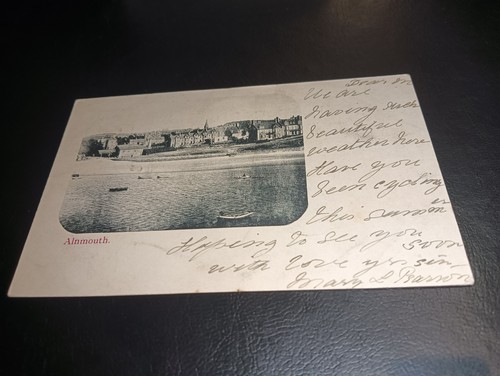 Dear M.
We are
having such
beautiful
weather here
Have you
been cycling
this summ
er
Alnmouth.
Hoping to see you
soon
with love yrs sin
Mary L Barron